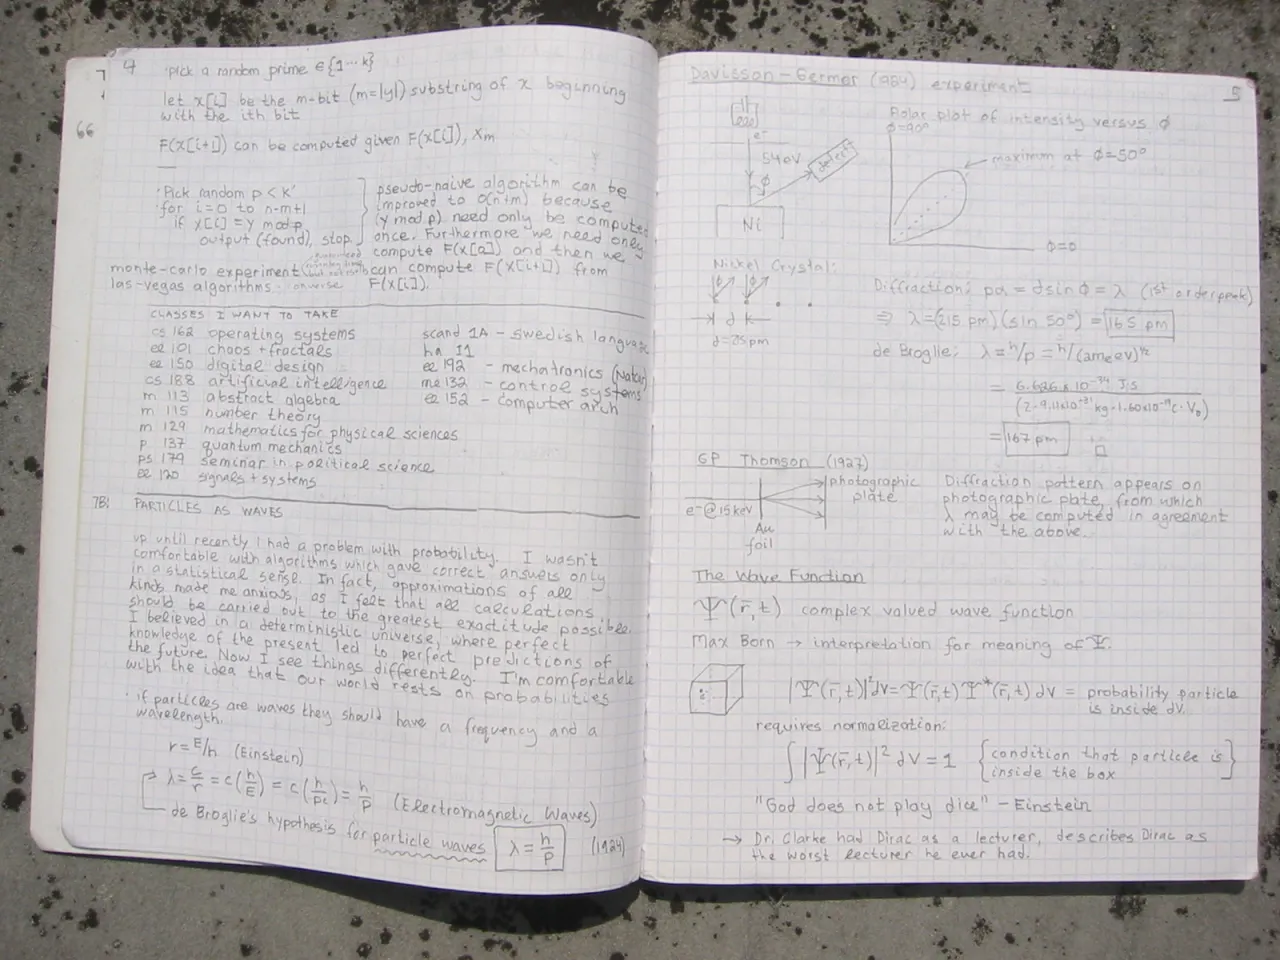 4
·pick a random prime ∈ {1⋯k}
let x[i] be the m-bit (m=|y|) substring of x beginning
with the ith bit
F(x[i+1]) can be computed given F(x[i]), Xm
66
·Pick random p < K
·for i=0 to n-m+1
if x[i] = Y mod p
output (found), stop.
pseudo-naive algorithm can be
improved to O(n+m) because
(y mod p) need only be computed
once. Furthermore we need only
compute F(x[0]) and then we
can compute F(x[i+1]) from
F(x[i]).
monte-carlo experiment
las-vegas algorithms
CLASSES I WANT TO TAKE
cs 162 operating systems
ee 101 chaos + fractals
ee 150 digital design
cs 188 artificial intelligence
m 113 abstract algebra
m 115 number theory
m 129 mathematics for physical sciences
p 137 quantum mechanics
ps 179 seminar in political science
ee 120 signals + systems
scand 1A - swedish language
ha 11
ee 192 - mechatronics
me 132 - control systems
ee 152 - computer arch
7B: PARTICLES AS WAVES
up until recently I had a problem with probability. I wasn't
comfortable with algorithms which gave correct answers only
in a statistical sense. In fact, approximations of all
kinds made me anxious, as I felt that all calculations
should be carried out to the greatest exactitude possible.
I believed in a deterministic universe, where perfect
knowledge of the present led to perfect predictions of
the future. Now I see things differently. I'm comfortable
with the idea that our world rests on probabilities
· if particles are waves they should have a frequency and a
wavelength.
r = E/h (Einstein)
λ = c/r = c(h/E) = c(h/pc) = h/p (Electromagnetic Waves)
de Broglie's hypothesis for particle waves λ = h/p (1924)
5
Davisson-Germer (1984) experiment
e⁻
54eV
φ
detect
Ni
Polar plot of intensity versus φ
φ=90°
maximum at φ=50°
φ=0
Nickel Crystal:
φ φ
d
d=215pm
Diffraction: pd = dsinφ = λ (1st order peak)
⇒ λ=(215 pm)(sin 50°) = 165 pm
de Broglie: λ = h/p = h/(2meeV)^½
= 6.626 × 10⁻³⁴ J·S / (2·9.11×10⁻³¹ kg·1.60×10⁻¹⁹C·V₀)
= 167 pm
GP Thomson (1927)
e⁻@15keV
Au
foil
photographic
plate
Diffraction pattern appears on
photographic plate, from which
λ may be computed in agreement
with the above.
The Wave Function
Ψ(r̄,t) complex valued wave function
Max Born → interpretation for meaning of Ψ.
e⁻
|Ψ(r̄,t)|²dV = Ψ(r̄,t)Ψ*(r̄,t) dV = probability particle
is inside dV.
requires normalization:
∫|Ψ(r̄,t)|² dV = 1 {condition that particle is
inside the box}
"God does not play dice" - Einstein
→ Dr. Clarke had Dirac as a lecturer, describes Dirac as
the worst lecturer he ever had.